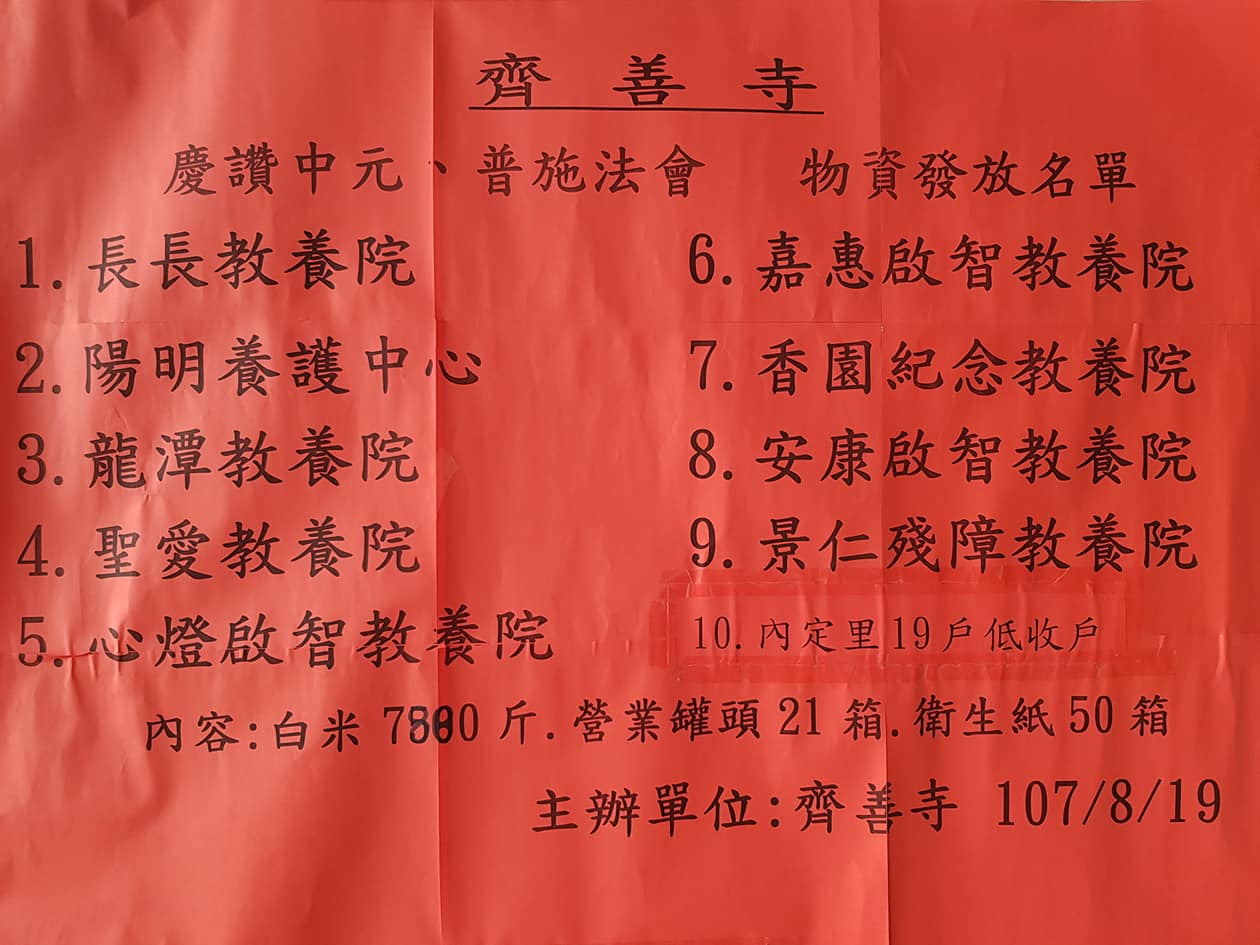 齊善寺
慶讚中元、普施法會 物資發放名單
1.長長教養院
2.陽明養護中心
3.龍潭教養院
4.聖愛教養院
5.心燈啟智教養院
6.嘉惠啟智教養院
7.香園紀念教養院
8.安康啟智教養院
9.景仁殘障教養院
10.內定里19戶低收戶
內容:白米 7800 斤.營業罐頭 21 箱.衛生紙 50 箱
主辦單位:齊善寺 107/8/19